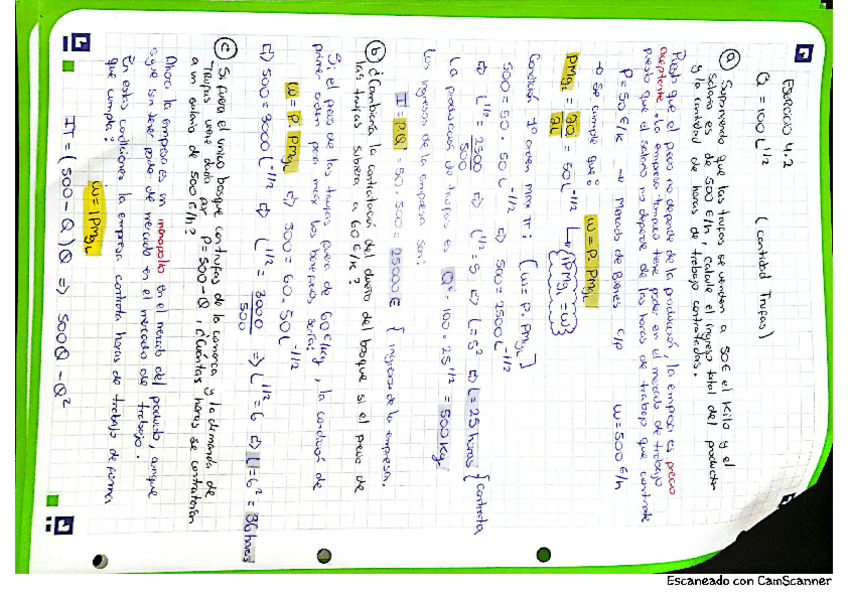 EJERCICIO 4.2
Q = 100 L^1/2 (cantidad Trufas)
ⓐ Suponiendo que las trufas se venden a 50€ el kilo y el
salario es de 500 €/h, calcule el ingreso total del productor
y la cantidad de horas de trabajo contratadas.
Puesto que el precio no depende de la producción, la empresa es precio
aceptante. La empresa tampoco tiene poder en el mercado de trabajo
puesto que el salario no depende de las horas de trabajo que contrate
P = 50 €/k → Mercado de Bienes C/P W = 500 €/h
→ Se cumple que: W = P. PMgL
PMgL = ∂Q/∂L = 50 L^-1/2 ↳ {IPMgL = W}
Condición 1º orden Max π: [W = P. PMgL]
500 = 50 · 50 L^-1/2 ⇒ 500 = 2500 L^-1/2
⇒ L^1/2 = 2500/500 ⇒ L^1/2 = 5 ⇒ L = 5² ⇒ L = 25 horas { contrata
La producción de trufas es Q* = 100 · 25^1/2 = 500 kg
Los ingresos de la empresa son:
I = P.Q = 50 · 500 = 25000 € { ingresos de la empresa.
ⓑ ¿Cambiaría la contratación del dueño del bosque si el precio de
las trufas subiera a 60 €/k?
Si el precio de las trufas fuera de 60 €/kg, la condición de
primer orden para max los beneficios sería:
W = P. PMgL ⇒ 500 = 60. 50 L^-1/2
⇒ 500 = 3000 L^-1/2 ⇒ L^1/2 = 3000/500 ⇒ L^1/2 = 6 ⇒ L = 6² = 36 horas
ⓒ Si fuera el único bosque con trufas de la comarca y la demanda de
Trufas viene dada por P = 500 - Q, ¿Cuántas horas se contratarán
a un salario de 500 €/h?
Ahora la empresa es un monopolio en el mercado del producto, aunque
sigue sin tener poder de mercado en el mercado de trabajo.
En estas condiciones la empresa contrata horas de trabajo de forma
que cumpla:
W = IPMgL
IT = (500 - Q) Q ⇒ 500Q - Q²
Escaneado con CamScanner